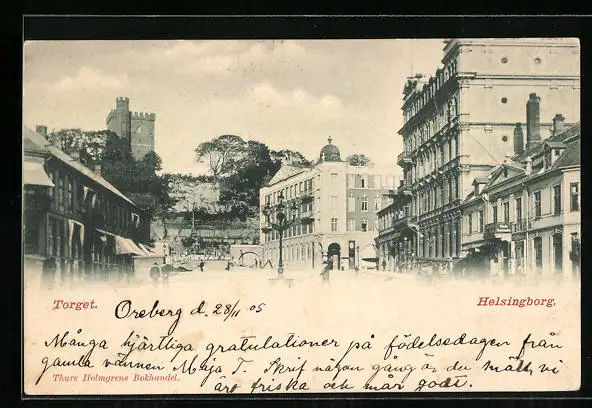 Torget.
Helsingborg.
Örebro d. 28/11 05
Många hjärtliga gratulationer på födelsedagen från
gamla vännen Maja T. Skrif någon gång är du snäll, vi
Thure Holmgrens Bokhandel.
äro friska och mår godt.